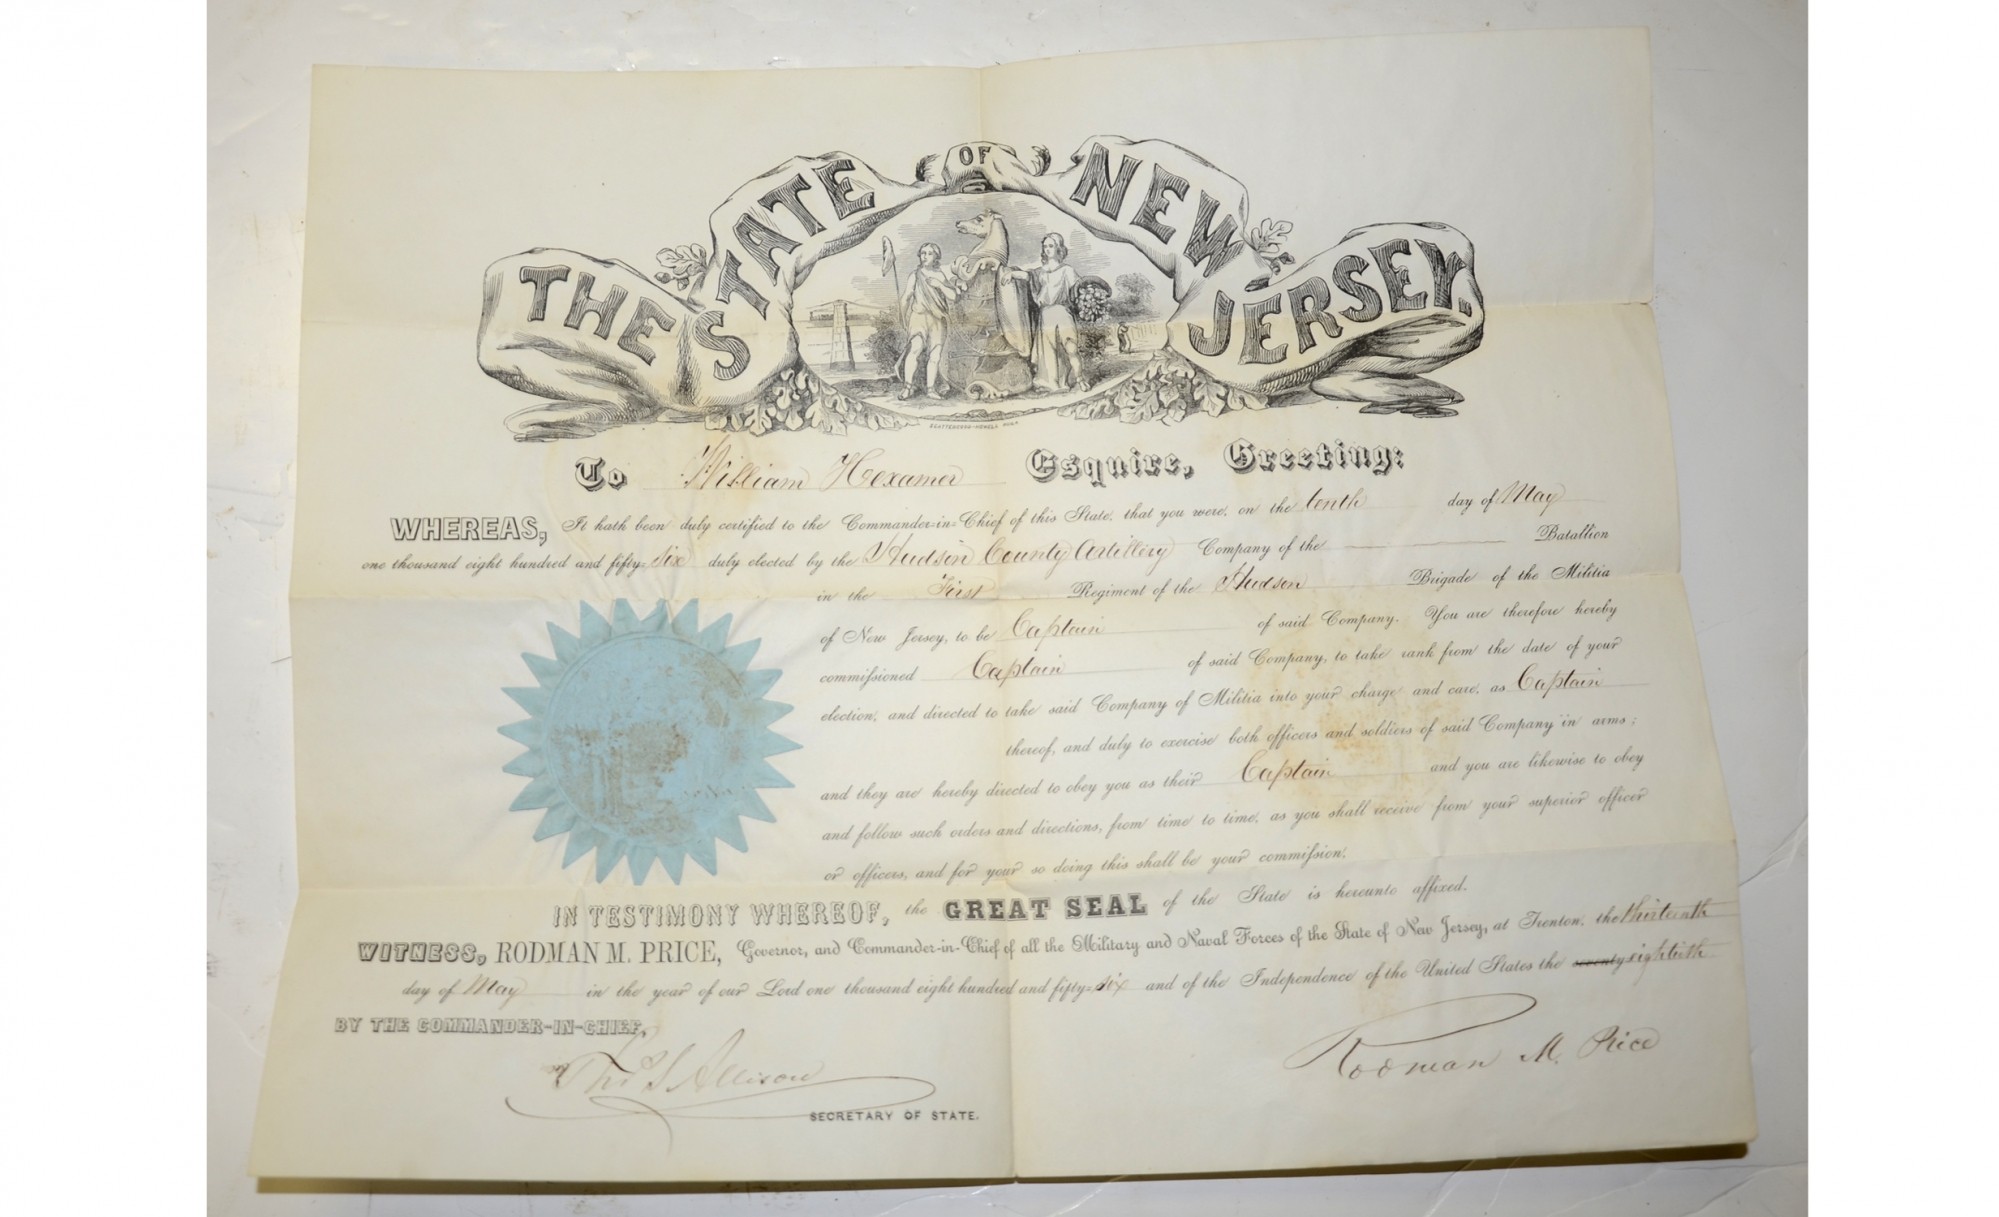 THE STATE OF NEW JERSEY.
To William Hexamer Esquire, Greeting:
WHEREAS, It hath been duly certified to the Commander-in-Chief of this State, that you were, on the tenth day of May
one thousand eight hundred and fifty-six duly elected by the Hudson County Artillery Company of the Battalion
in the First Regiment of the Hudson Brigade of the Militia
of New Jersey, to be Captain of said Company. You are therefore hereby
commissioned Captain of said Company, to take rank from the date of your
election, and directed to take said Company of Militia into your charge and care, as Captain
thereof, and duly to exercise both officers and soldiers of said Company in arms;
and they are hereby directed to obey you as their Captain and you are likewise to obey
and follow such orders and directions, from time to time, as you shall receive from your superior officer
or officers, and for your so doing this shall be your commission.
IN TESTIMONY WHEREOF, the GREAT SEAL of the State is hereunto affixed.
WITNESS, RODMAN M. PRICE, Governor, and Commander-in-Chief of all the Military and Naval Forces of the State of New Jersey, at Trenton, the thirteenth
day of May in the year of our Lord one thousand eight hundred and fifty-six and of the Independence of the United States the seventy eightieth
BY THE COMMANDER-IN-CHIEF,
Rodman M. Price
Thos S Allison
SECRETARY OF STATE.